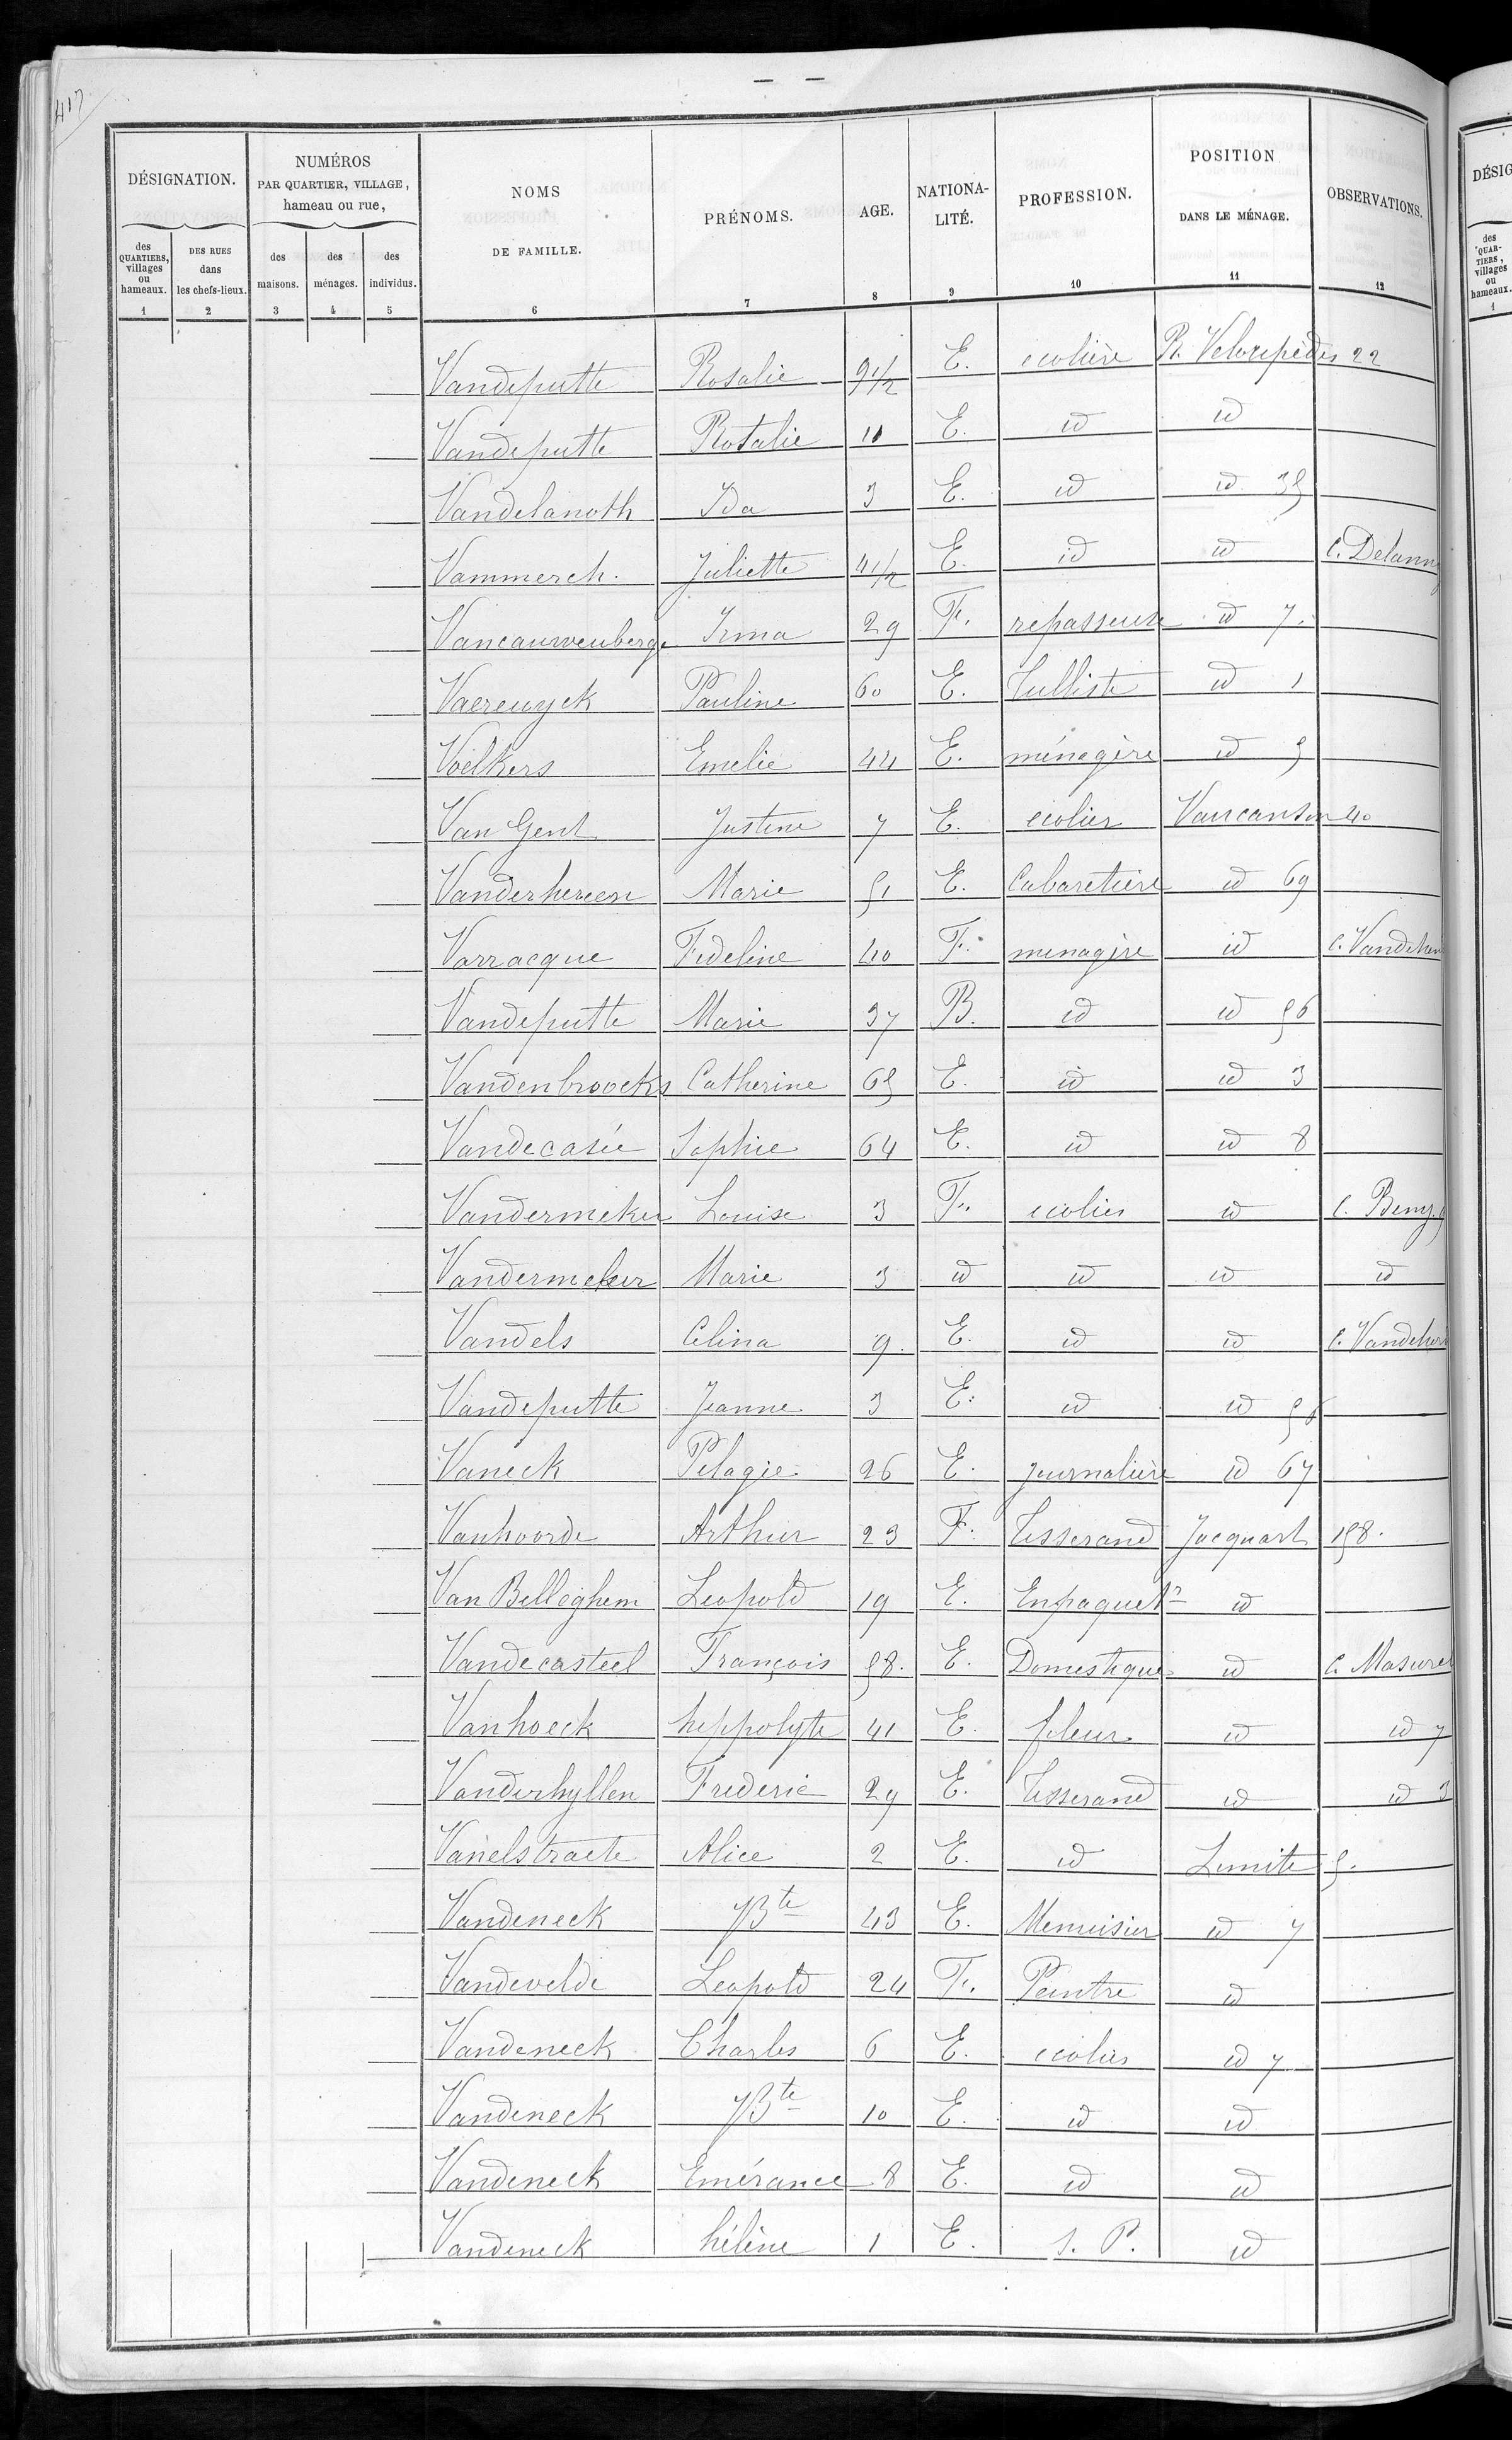 417
DÉSIGNATION.
NUMÉROS
PAR QUARTIER, VILLAGE,
hameau ou rue,
NOMS
DE FAMILLE.
PRÉNOMS.
AGE.
NATIONA-
LITÉ.
PROFESSION.
POSITION
DANS LE MÉNAGE.
OBSERVATIONS.
des
QUARTIERS,
villages
ou
hameaux.
DES RUES
dans
les chefs-lieux.
des
maisons.
des
ménages.
des
individus.
1 2 3 4 5 6 7 8 9 10 11 12
Vandeputte Rosalie 9 1/2 E. ecolière R. Velocipèdes 22
Vandeputte Rotalie 11 E. id id
Vandelanoth Ida 3 E. id id 35
Vammerch. Juliette 4 1/2 E. id id C. Delanny
Vancauwenberge Irma 29 F. repasseuse id 7.
Vaereuyck Pauline 60 E. Tulliste id 1
Voelkers Emelie 44 E. ménagère id 5
Van Gent Justine 7 E. ecolier Vaucanson 40
Vanderhereen Marie 51 E. Cabaretière id 69
Varracque Fideline 40 F. menagère id C.
Vandeputte Marie 37 B. id id 56
Vandenbroocks Catherine 65 E. id id 3
Vandecasie Sophie 64 E. id id 8
Vandermeker Louise 3 F. ecolier id C. Beny
Vandermeker Marie 3 id id id id
Vandels Celina 9. E. id id C.
Vandeputte Jeanne 3 E. id id 56
Vaneck Pelagie 26 E. journalière id 67
Vanhoorde Arthur 23 F. Tisserand Jacquart 158.
Van Belleghem Leopold 19 E. Enpaquetr id
Vandecasteel François 58. E. Domestique id C. Masurel
Vanhoeck hyppolyte 41 E. fileur id id 7
Vanderhyllen Frederic 29 E. Tisserand id id 3
Vanelstraete Alice 2 E. id Limite 5.
Vandeneck JBte 43 E. Menuisier id 7
Vandevelde Leopold 24 F. Peintre id
Vandeneck Charles 6 E. ecolier id 7
Vandeneck JBte 10 E. id id
Vandeneck Emérance 8 E. id id
Vandeneck hélène 1 E. s. P. id
DÉSIG
des
QUAR-
TIERS,
villages
ou
hameaux.
1